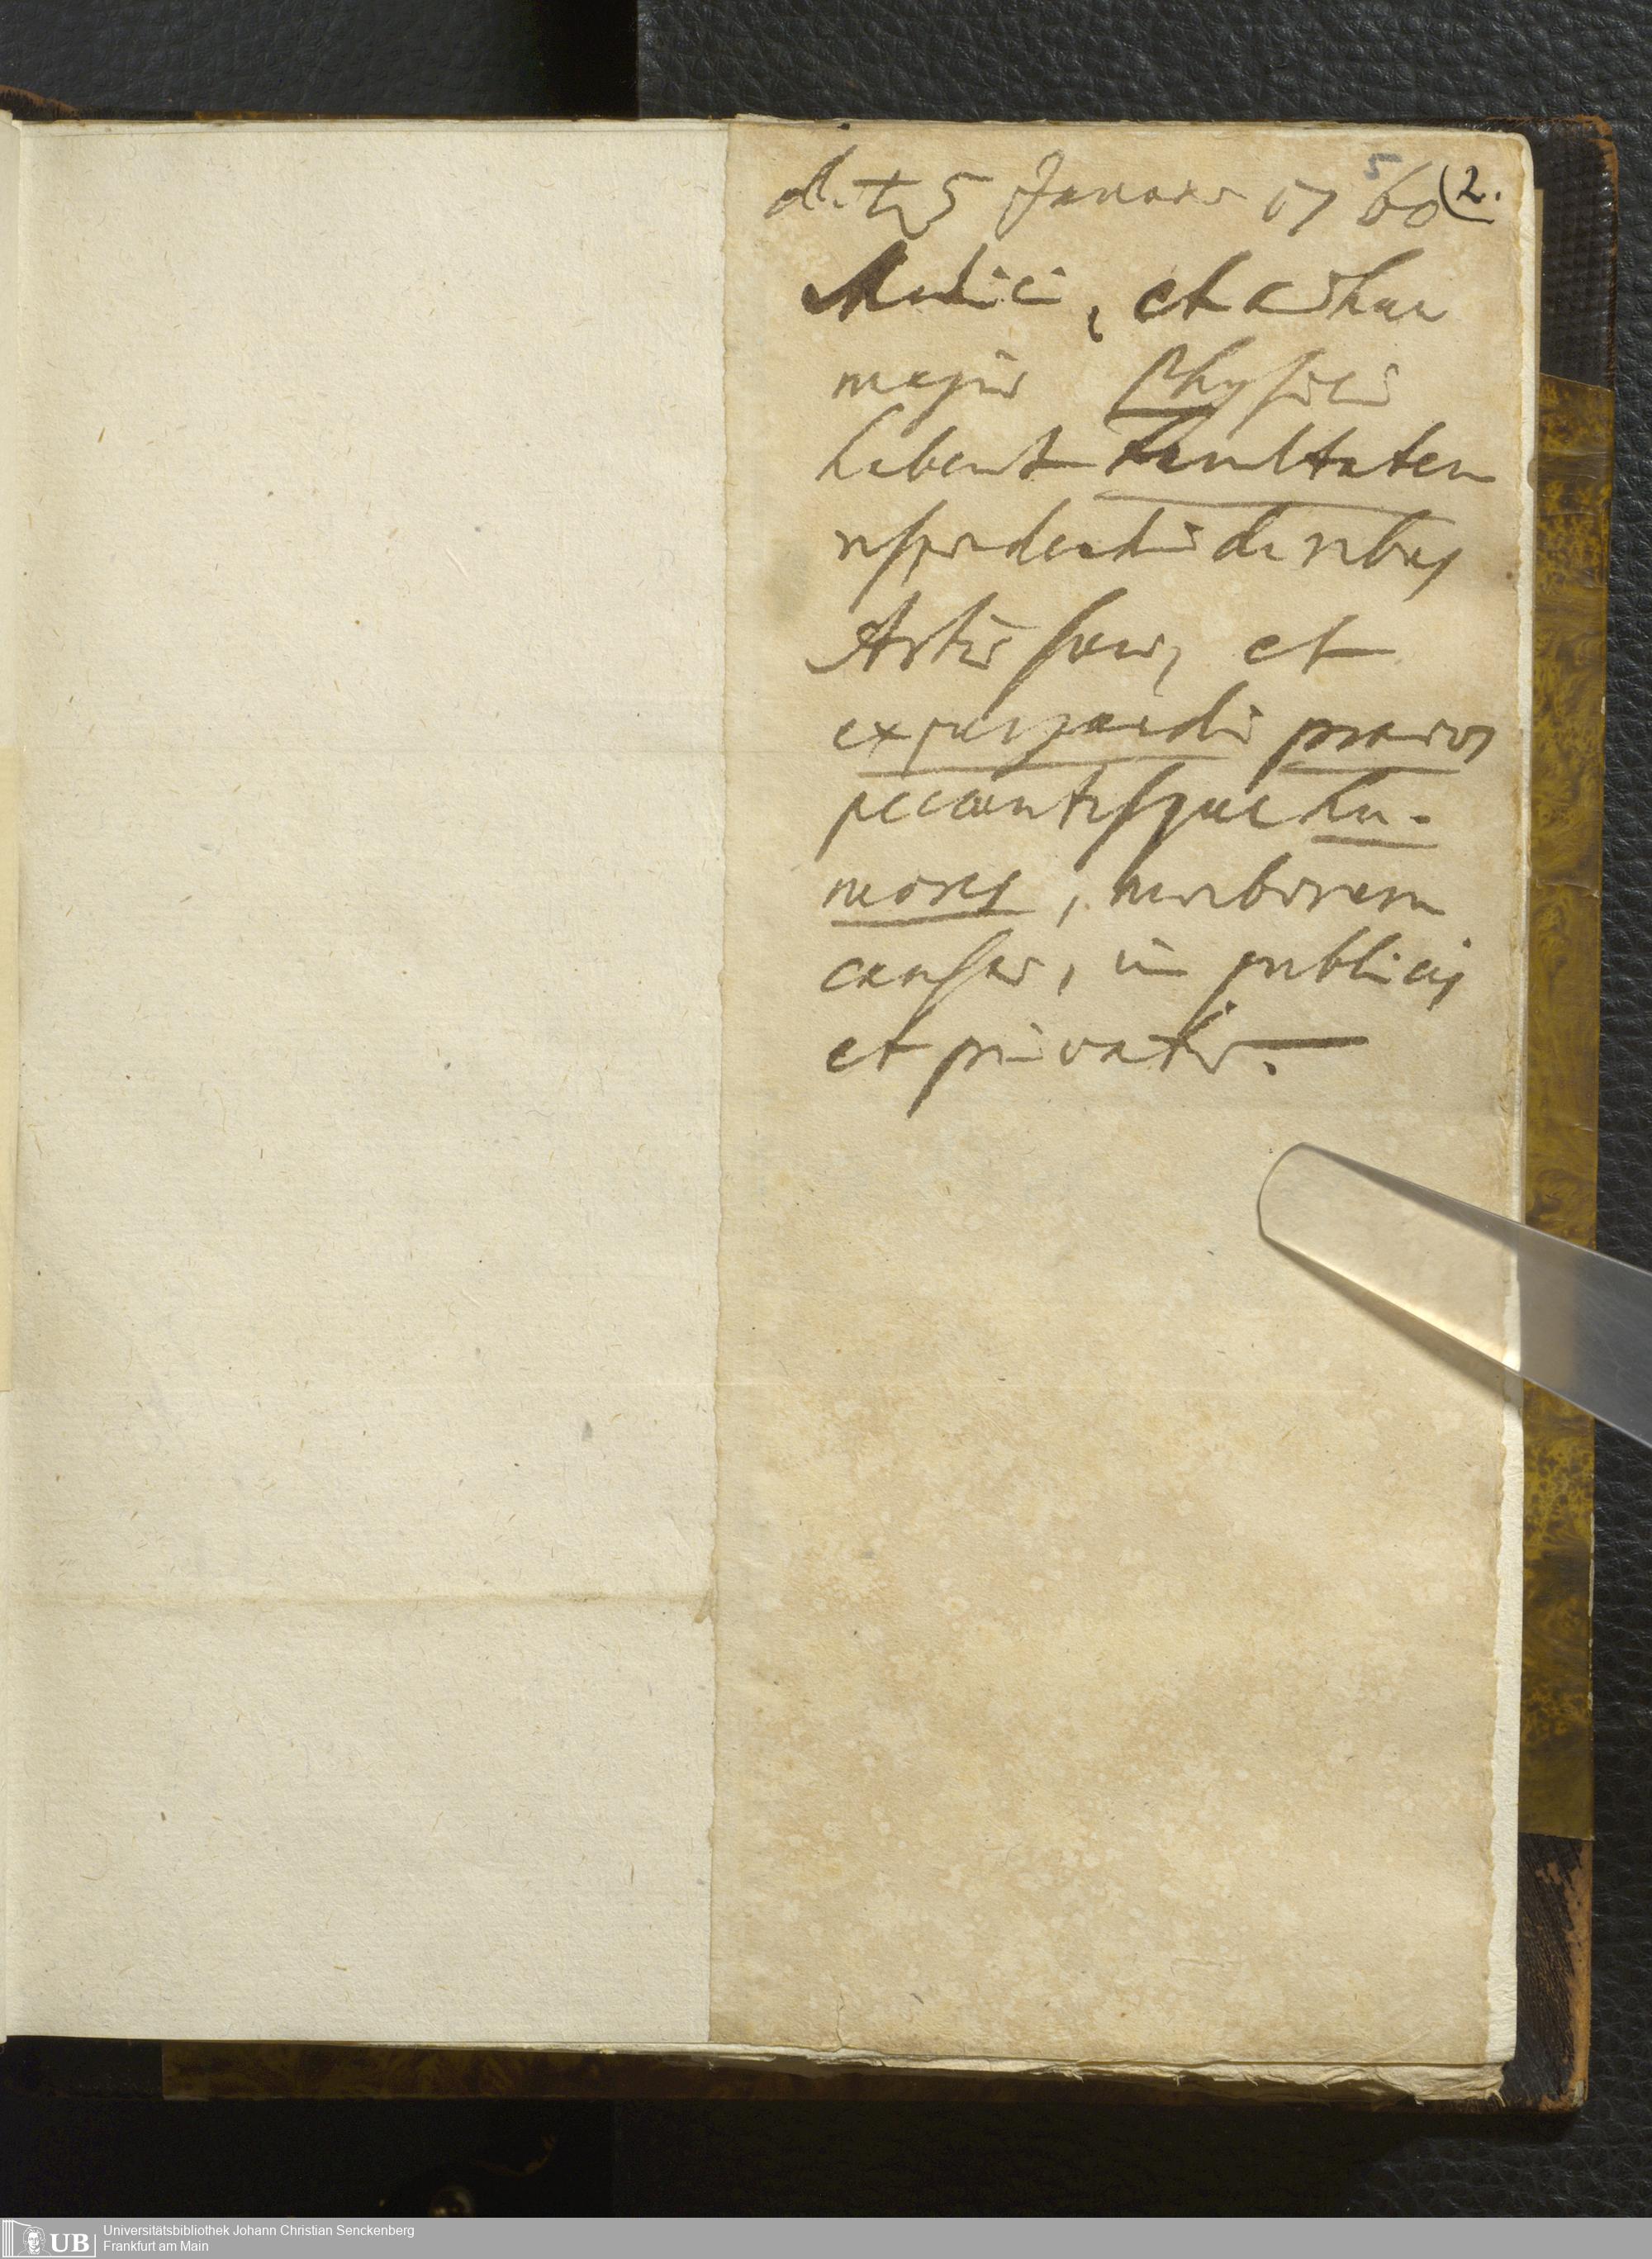 d. ♄ 5 Januar 1760 (2.
5
Medici, et adhuc
magis Physici
habent Facultatem
respondendi de rebus
Artis suae, et
expurgandi pravos
peccantesque hu-
mores, morborum
causas, in publicis
et privatis.
UB Universitätsbibliothek Johann Christian Senckenberg
Frankfurt am Main